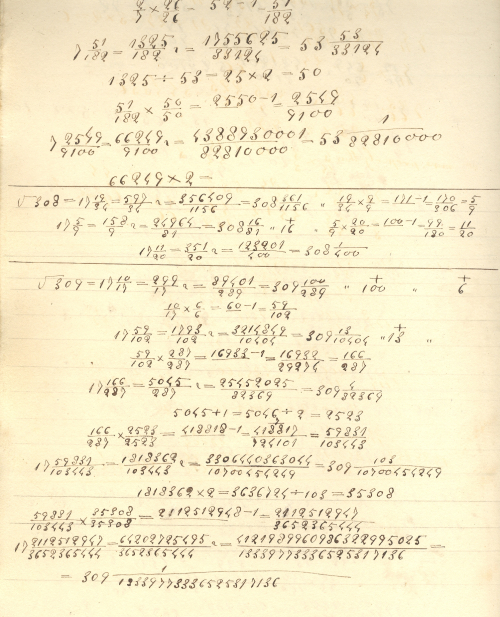 2/7 × 26/26 = 52-1 = 51/182
7 51/182 = 1325/182 ² = 1755625/33124 = 53 53/33124
1325 ÷ 53 = 25 × 2 = 50
51/182 × 50/50 = 2550-1 = 2549/9100
7 2549/9100 = 66249/9100 ² = 4388930001/82810000 = 53 1/82810000
66249 × 2 =
√308 = 17 19/34 = 597/34 ² = 356409/1156 = 308 161/1156 " 19/34 × 9/9 = 171-1 = 170/306 = 5/9
17 5/9 = 158/9 ² = 24964/81 = 308 16/81 " + 16 " 5/9 × 20/20 = 100-1 = 99/180 = 11/20
17 11/20 = 351/20 ² = 123201/400 = 308 1/400
√309 = 17 10/17 = 299/17 ² = 89401/289 = 309 100/289 " + 100 " + 6
10/17 × 6/6 = 60-1 = 59/102
17 59/102 = 1793/102 ² = 3214849/10404 = 309 13/10404 " + 13 "
59/102 × 287/287 = 16933-1 = 16932/29274 = 166/287
17 166/287 = 5045/287 ² = 25452025/82369 = 309 4/82369
5045+1 = 5046 ÷ 2 = 2523
166/287 × 2523/2523 = 418818-1 = 418817/724101 = 59831/103443
17 59831/103443 = 1818362/103443 ² = 3306440363044/10700454249 = 309 103/10700454249
1818362 × 2 = 3636724 ÷ 103 = 35308
59831/103443 × 35308/35308 = 2112512948-1 = 2112512947/3652365444
17 2112512947/3652365444 = 64202725495/3652365444 ² = 4121989960936322995025/13339773336525317136 =
= 309 1/13339773336525317136